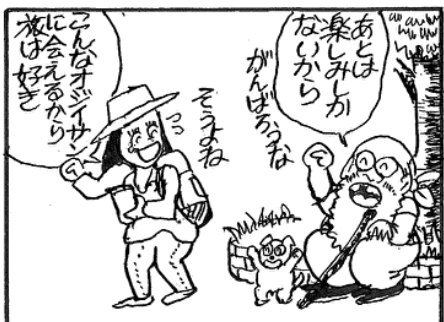 あとは
楽しみしか
ないから
がんばろうな
そうよね
こんなオジイサン
に会えるから
旅は好き